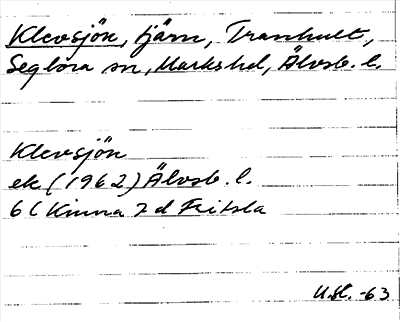 Klevsjön, tjärn, Tranhult,
Seglora sn, Marks hd, Älvsb. l.
Klevsjön
ek (1962) Älvsb. l.
6 C Kinna 7 d Fritsla
U.H. -63